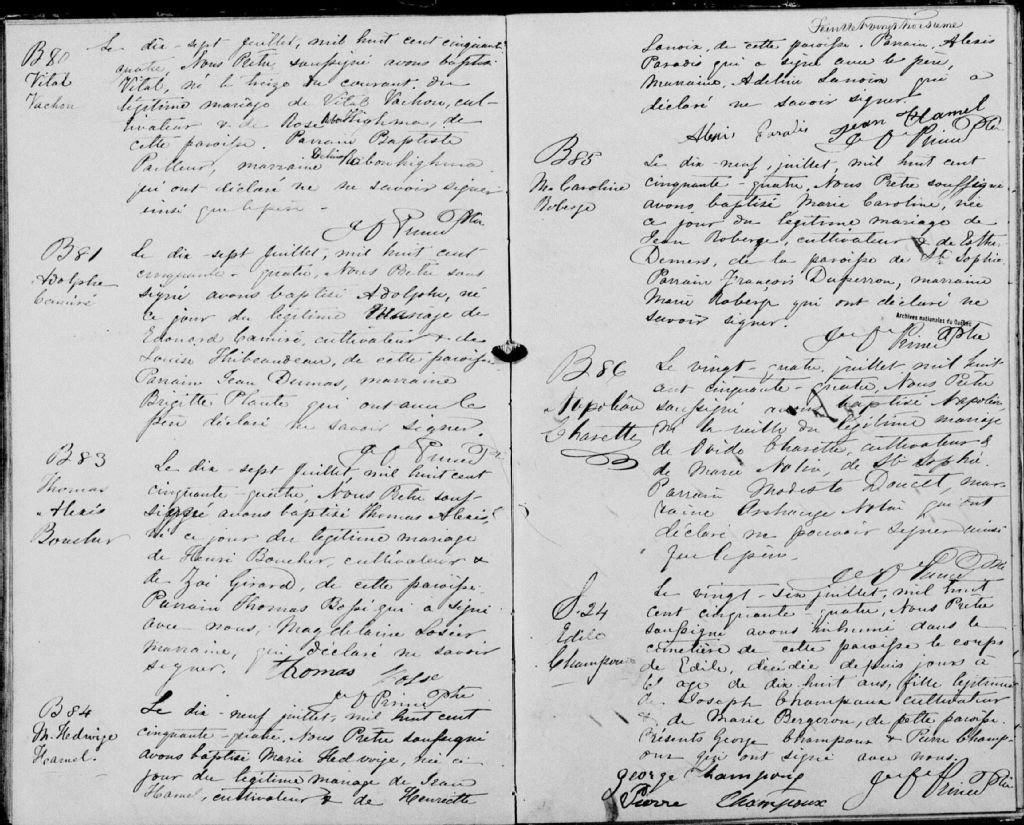 B80
Vital
Vachon
Le dix-sept juillet, mil huit cent cinquante
quatre, Nous Prêtre soussigné avons baptisé
Vital, né le treize du courant, du
légitime mariage de Vital Vachon, cul-
tivateur & de Rose de
cette paroisse. Parrain Baptiste
Pailleur, marraine
qui ont déclaré ne ne savoir signer
ainsi que le père -
J O Prince Ptre
B81
Adolphe
Camiré
Le dix-sept juillet, mil huit cent
cinquante-quatre, Nous Prêtre sous
signé avons baptisé Adolphe, né
ce jour du légitime mariage de
Edouard Camiré, cultivateur & de
Louise Thibeaudeau, de cette paroisse
Parrain Jean Dumas, marraine
Brigitte Plante qui ont avec le
père déclaré ne savoir signer.
J O Prince Ptre
B83
Thomas
Alexis
Boucher
Le dix-sept juillet, mil huit cent
cinquante-quatre, Nous Prêtre sous-
signé avons baptisé Thomas Alexis,
né ce jour du légitime mariage
de Henri Boucher, cultivateur &
de Zoé Girard, de cette paroisse.
Parrain Thomas Bossé qui a signé
avec nous, Magdelaine Losier
marraine, qui déclaré ne savoir
signer. Thomas Bosse
J O Prince Ptre
B84
M. Hedwige
Hamel.
Le dix-neuf juillet, mil huit cent
cinquante-quatre, Nous Prêtre soussigné
avons baptisé Marie Hedwige, née ce
jour du légitime mariage de Jean
Hamel, cultivateur & de Henriette
feuillet vingt troisieme
Lanoix, de cette paroisse. Parrain, Alexis
Paradis qui a signé avec le père,
Marraine, Adeline Lanoix qui a
déclaré ne savoir signer.
Jean Hamel
Alexis Paradis
J O Prince Ptre
B85
M. Caroline
Roberge
Le dix-neuf, juillet, mil huit cent
cinquante-quatre, Nous Prêtre soussigné
avons baptisé Marie Caroline, née
ce jour du légitime mariage de
Jean Roberge, cultivateur & de Esther
Demers, de la paroisse de St. Sophie
Parrain François Duperron, marraine
Marie Roberge qui ont déclaré ne
savoir signer.
Archives nationales du Québec
J O Prince Ptre
B.86
Napoléon
Charette
Le vingt-quatre, juillet, mil huit
cent cinquante-quatre, Nous Prêtre
soussigné avons baptisé Napoléon,
né la veille du légitime mariage
de Ovide Charette, cultivateur &
de Marie Nolin, de St. Sophie.
Parrain Modeste Doucet, mar-
raine Archange qui ont
déclaré ne pouvoir signer ainsi
que le père.
J O Prince Ptre
S.24
Edile
Champoux
Le vingt-six juillet, mil huit
cent cinquante-quatre, Nous Prêtre
soussigné avons inhumé dans le
cimetière de cette paroisse le corps
de Edile, décédée depuis jours à
l'age de dix huit ans, fille légitime
de Joseph Champoux cultivateur
& de Marie Bergeron, de cette paroisse.
Présents George Champoux & Pierre Champ-
oux qui ont signé avec nous.
george Champoux
Pierre Champoux
J O Prince Ptre